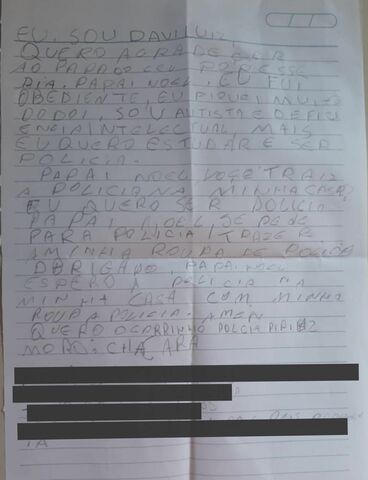 EU. SOU DAVI LUIZ,
QUERO AGRADESER
AO PAPAI DO CEU POR ESSE
DIA. PAPAI NOEL, EU FUI
OBEDIENTE, EU FIQUEI MUITO
DODOI, SOU AUTISTA E DEFICI
ENCIA INTELECTUAL, MAIS
EU QUERO ESTUDAR E SER
POLICIA.
PAPAI NOEL VOSE TRAIZ
A POLICIA NA MINHA CASA?
EU QUERO SER POLICIA
PAPAI NOEL SE PEDE
PARA POLICIA TRAZER
A MINHA ROUPA DE POLICIA
OBRIGADO, PAPAI NOEL
ESPERO A POLICIA NA
MINHA CASA COM MINHA
ROUPA POLICIA. AMEN
QUERO O CARRINHO POLCIA
MORO: CHACARA